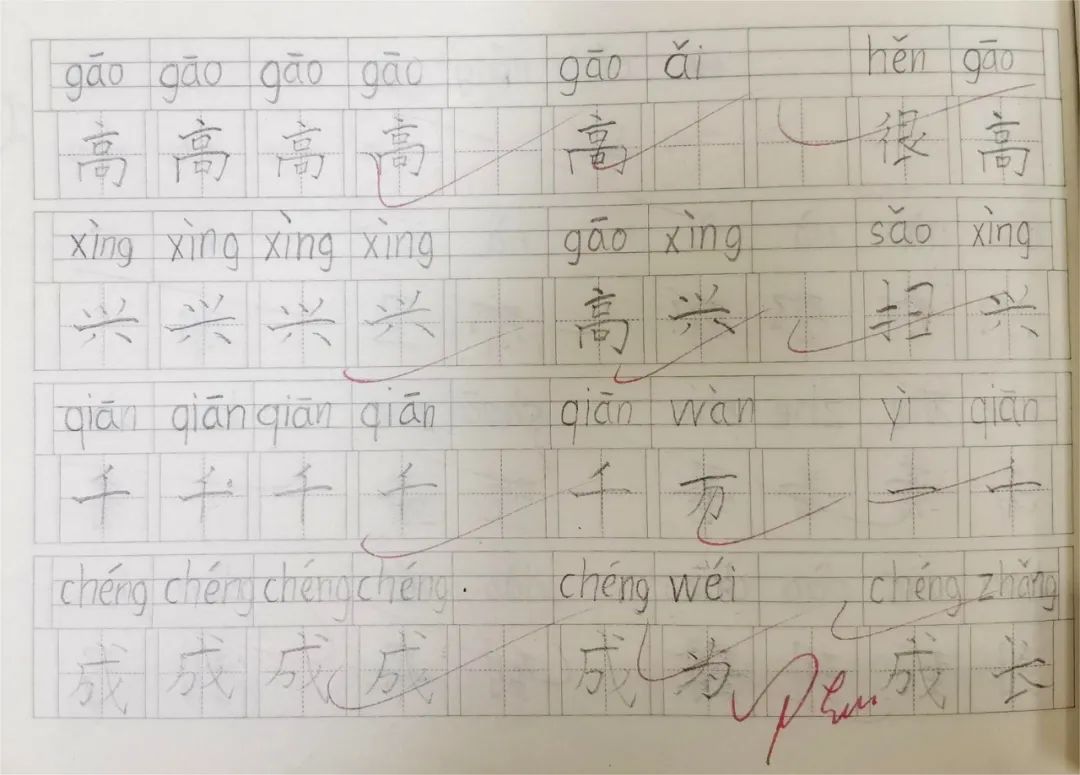 gāo gāo gāo gāo gāo ǎi hěn gāo
高 高 高 高 高 很 高
xìng xìng xìng xìng gāo xìng sǎo xìng
兴 兴 兴 兴 高 兴 扫 兴
qiān qiān qiān qiān qiān wàn yì qiān
千 千 千 千 千 万 一 千
chéng chéng chéng chéng chéng wéi chéng zhǎng
成 成 成 成 成 为 成 长